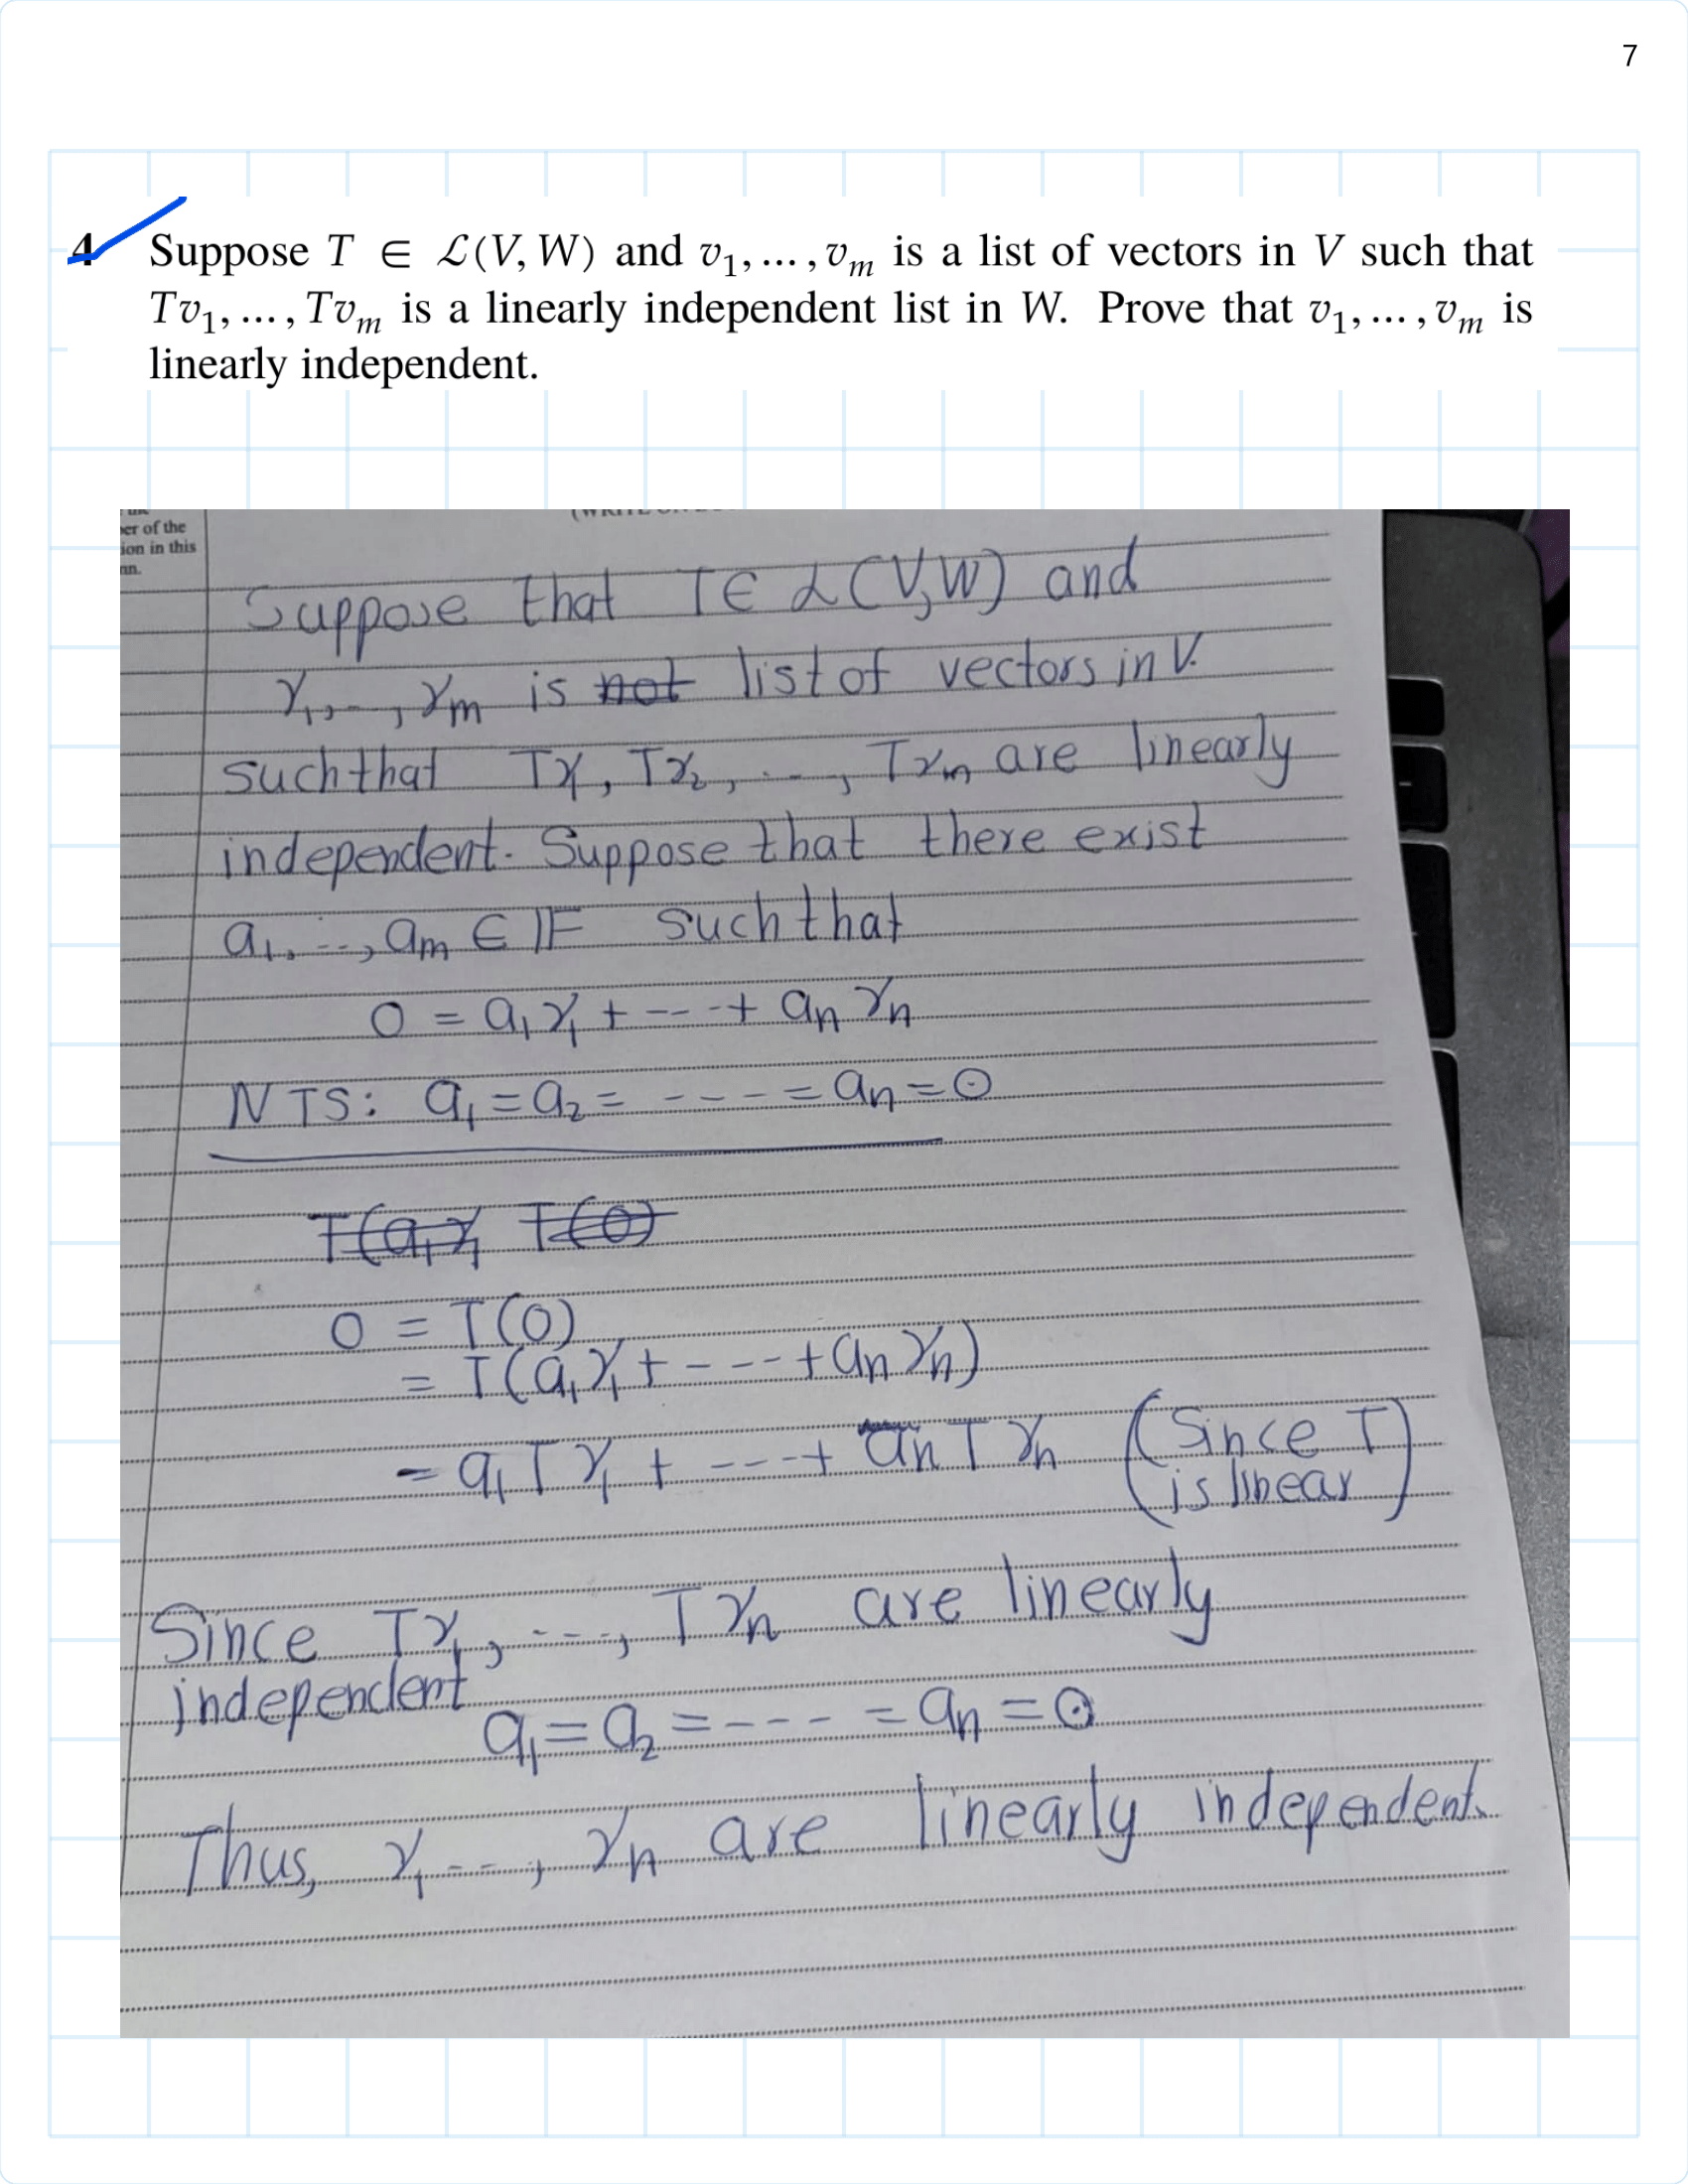 7
4 Suppose T ∈ ℒ(V, W) and v₁, … , vₘ is a list of vectors in V such that
Tv₁, … , Tvₘ is a linearly independent list in W. Prove that v₁, … , vₘ is
linearly independent.
er of the
ion in this
Suppose that T ∈ ℒ(V,W) and
v₁, --, vₘ is not list of vectors in V.
such that Tv₁, Tv₂, ---, Tvₘ are linearly
independent. Suppose that there exist
a₁, ---, aₘ ∈ 𝔽 such that
0 = a₁v₁ + --- + aₙvₙ
NTS: a₁ = a₂ = ---- = aₙ = 0
T(a₁v₁ T(0)
0 = T(0)
= T(a₁v₁ + ---- + aₙvₙ)
= a₁Tv₁ + ---- + aₙTvₙ (Since T
is linear)
Since Tv₁, ----, Tvₙ are linearly
independent
a₁ = a₂ = ---- = aₙ = 0
Thus, v₁ ---, vₙ are linearly independent.